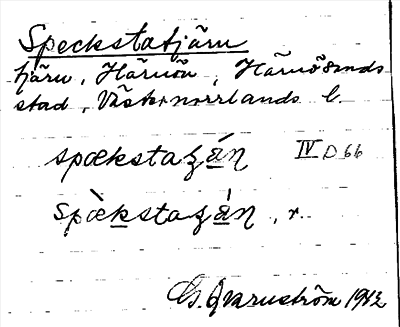 Speckstatjärn
tjärn, Härnön, Härnösands
stad, Västernorrlands l.
spækstaʒán IV D 66
spæ̀kstaʒán, r.
G. Qvarnström 1942